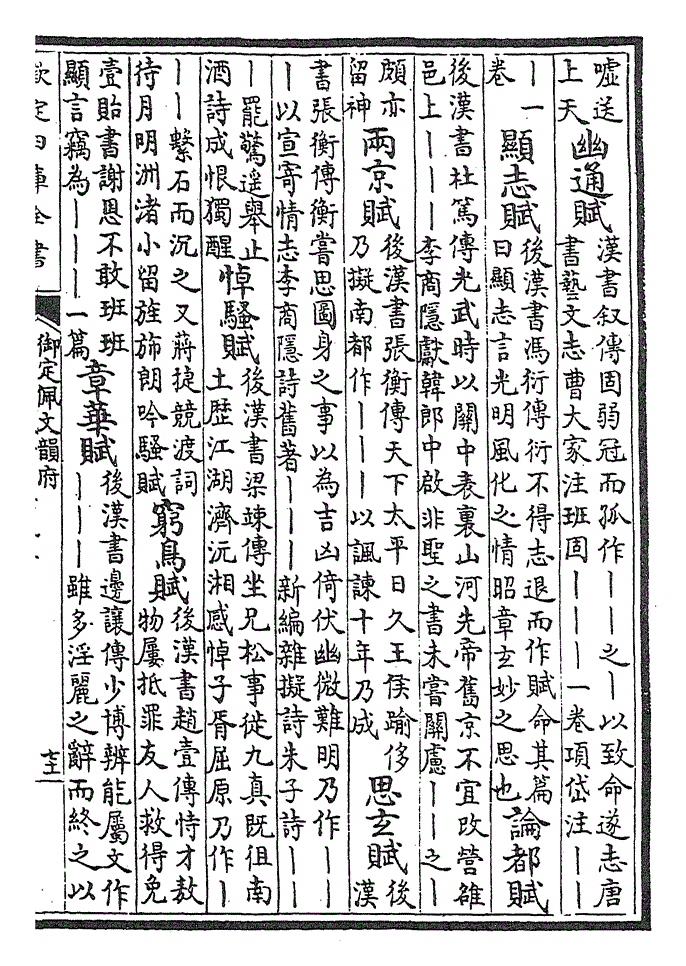 嘘送
上天
幽通賦
漢書叙傳固弱冠而孤作｜｜｜之｜以致命遂志唐
書藝文志曹大家注班固｜｜｜一卷項岱注｜｜
｜｜一
卷
顯志賦
後漢書馮衍傳衍不得志退而作賦命其篇
曰顯志言光明風化之情昭章玄妙之思也
論都賦
後漢書杜篤傳光武時以關中表裏山河先帝舊京不宜改營雒
邑上｜｜｜李商隱獻韓郎中啟非聖之書未嘗關慮｜｜之｜
頗亦
留神
兩京賦
後漢書張衡傳天下太平日久王侯踰侈
乃擬南都作｜｜｜以諷諫十年乃成
思玄賦
後
漢
書張衡傳衡嘗思圖身之事以為吉凶倚伏幽微難明乃作｜｜
｜以宣寄情志李商隱詩舊著｜｜｜新編雜擬詩朱子詩｜｜
｜罷驚遥舉止
酒詩成恨獨醒
悼騷賦
後漢書梁竦傳坐兄松事徙九真既徂南
土歷江湖濟沅湘感悼子胥屈原乃作｜
｜｜繫石而沉之又蔣捷競渡詞
待月明洲渚小留旌斾朗吟騷賦
窮鳥賦
後漢書趙壹傳恃才敖
物屢抵罪友人救得免
壹貽書謝恩不敢班班
顯言竊為｜｜｜一篇
章華賦
後漢書邊讓傳少博辨能屬文作
｜｜｜雖多淫麗之辭而終之以
欽定四庫全書
御定佩文韻府